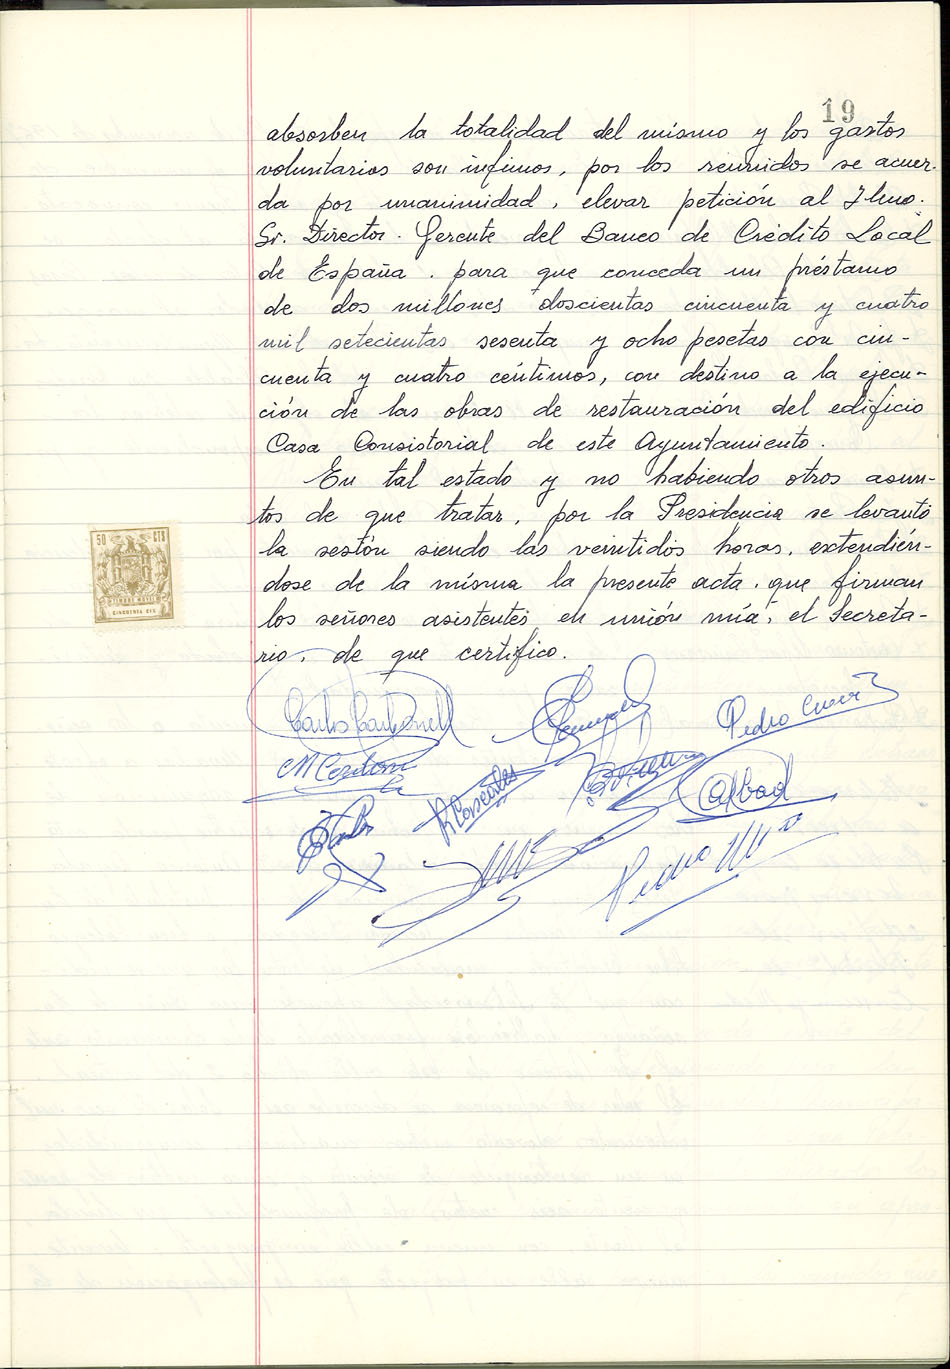 19
absorben la totalidad del mismo y los gastos
voluntarios son ínfimos, por los reunidos se acuer-
da por unanimidad, elevar petición al Ilmo.
Sr. Director-Gerente del Banco de Crédito Local
de España, para que conceda un préstamo
de dos millones doscientas cincuenta y cuatro
mil setecientas sesenta y ocho pesetas con cin-
cuenta y cuatro céntimos, con destino a la ejecu-
ción de las obras de restauración del edificio
Casa Consistorial de este Ayuntamiento.
En tal estado y no habiendo otros asun-
tos de que tratar, por la Presidencia se levantó
la sesión siendo las veintidos horas, extendién-
dose de la misma la presente acta, que firman
los señores asistentes en unión mía, el Secreta-
rio, de que certifico.
50 CTS
TIMBRE MOVIL
CINCUENTA CTS
Carlos Carbonell
Pedro
Abad
Pedro